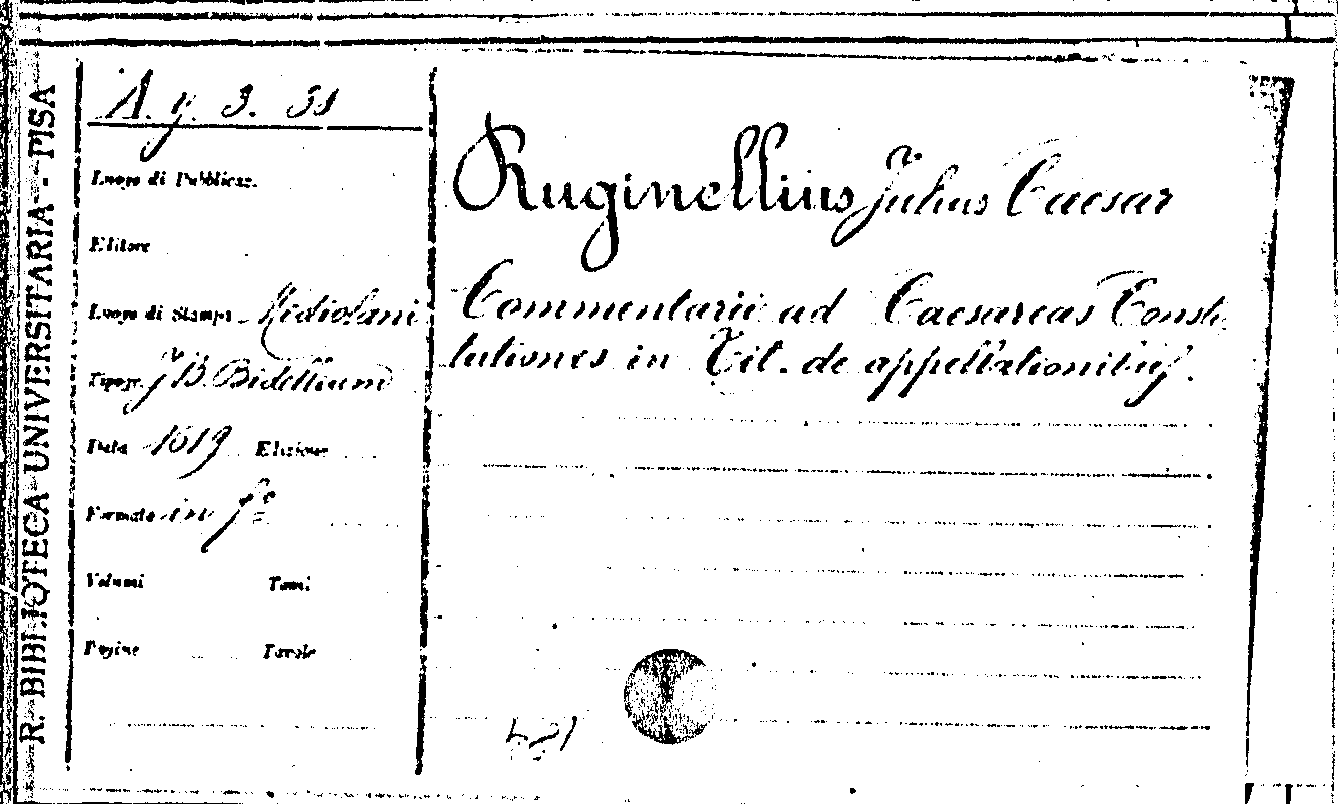 R. BIBLIOTECA UNIVERSITARIA - PISA
A. y. 3. 31
Luogo di Pubblicaz.
Editore
Luogo di Stampa Mediolani
Tipogr. J B. Bidellium
Data 1619 Edizione
Formato in fº
Volumi Tomi
Pagine Tavole
Ruginellius Julius Caesar
Commentarii ad Caesareas Consti
tutiones in Tit. de appellationibus.